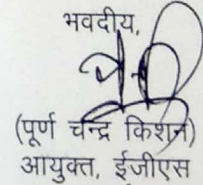 भवदीय,
(पूर्ण चन्द्र किशन)
आयुक्त, ईजीएस